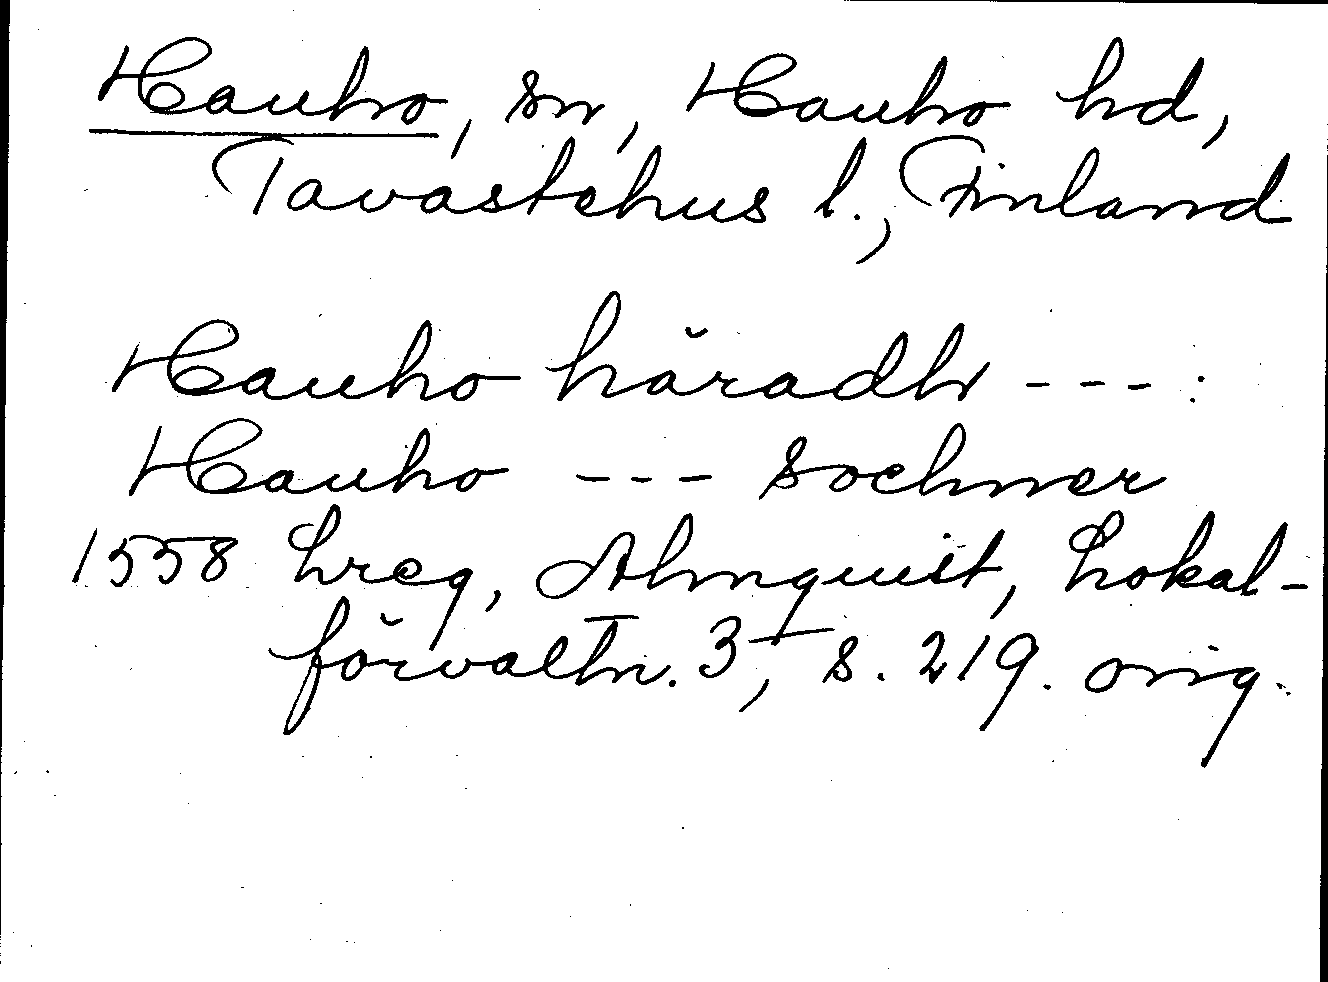 Hauho, sn, Hauho hd,
Tavastehus l., Finland
Hauho häradh --- :
Hauho --- sochner
1558 Lreg, Almquist, Lokal-
förvaltn. 3, s. 219. orig.